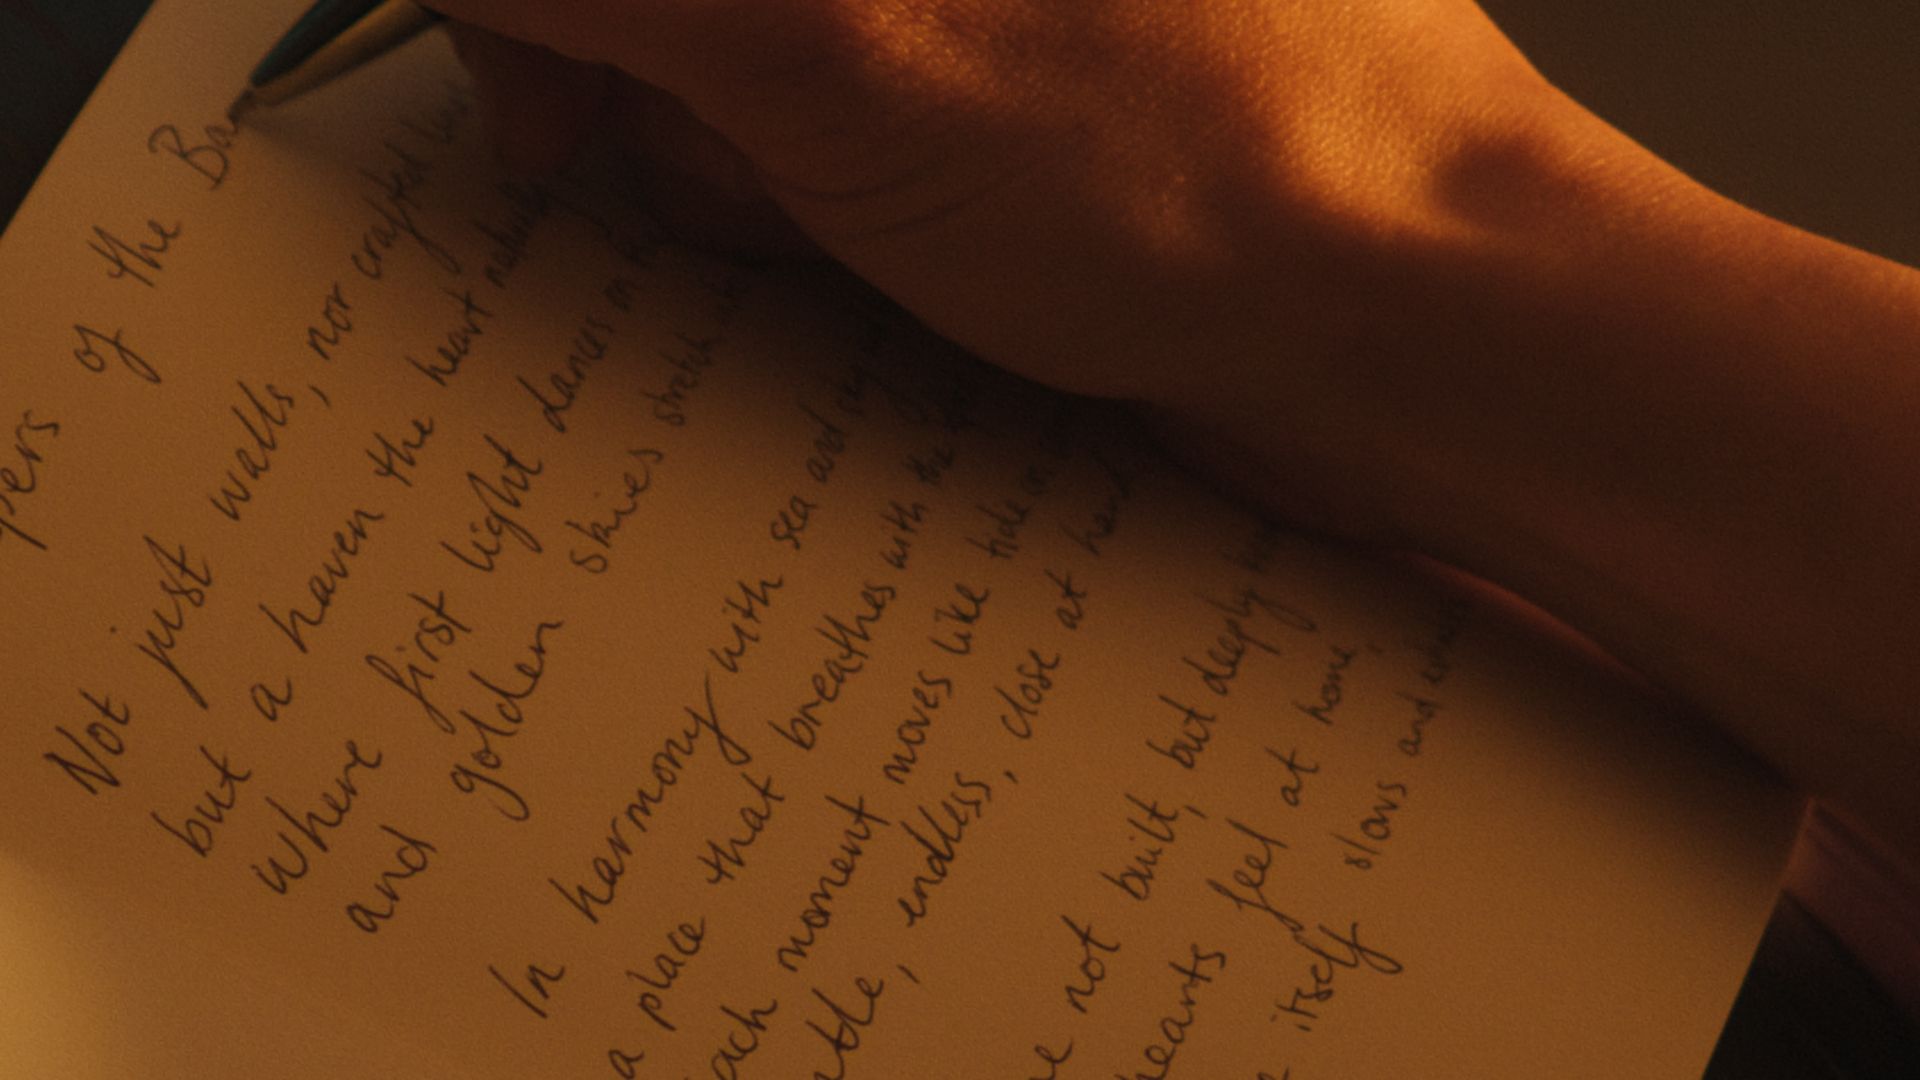 of the Ba
Not just walls, nor crafted
but a haven the heart
where first light dances
and golden skies stretch
In harmony with sea and
a place that breathes with the
moment moves like tide
endless, close at
not built, but deeply
hearts feel at home,
itself slows and